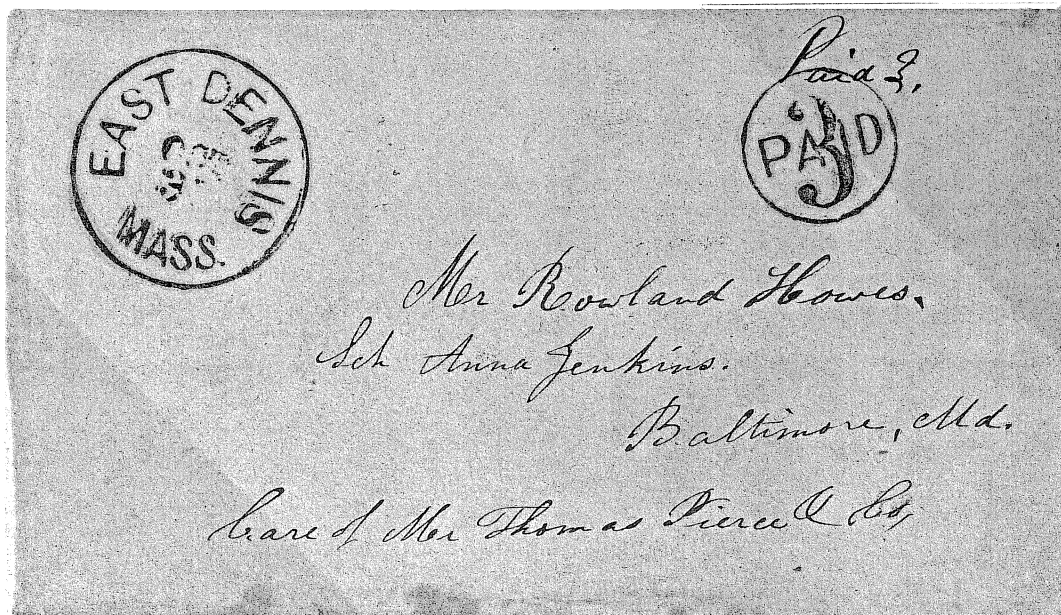 EAST DENNIS
MASS.
Paid 3.
PAID
3
Mr Rowland Howes.
Sch Anna Jenkins.
Baltimore, Md.
Care of Mr Thomas Pierce & Co,